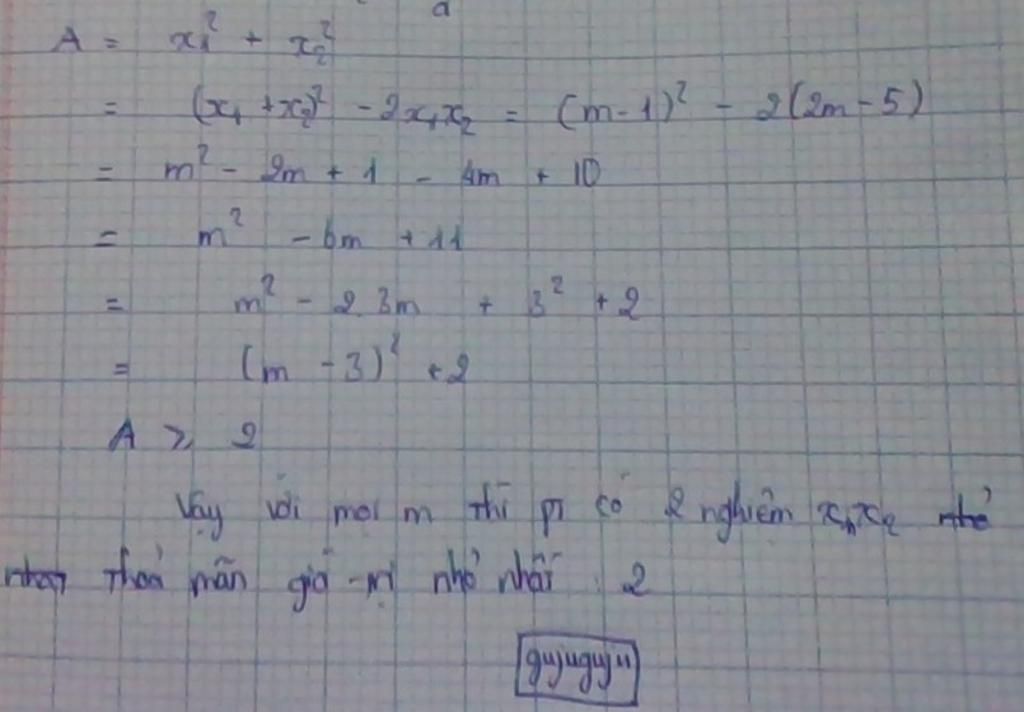 a
A = x₁² + x₂²
= (x₁ + x₂)² - 2x₁x₂ = (m-1)² - 2(2m-5)
= m² - 2m + 1 - 4m + 10
= m² - 6m + 11
= m² - 2.3m + 3² + 2
= (m - 3)² + 2
A ≥ 2
Vậy với mọi m thì pt có 2 nghiệm x₁,x₂
thoả mãn giá trị nhỏ nhất : 2
gujuguju